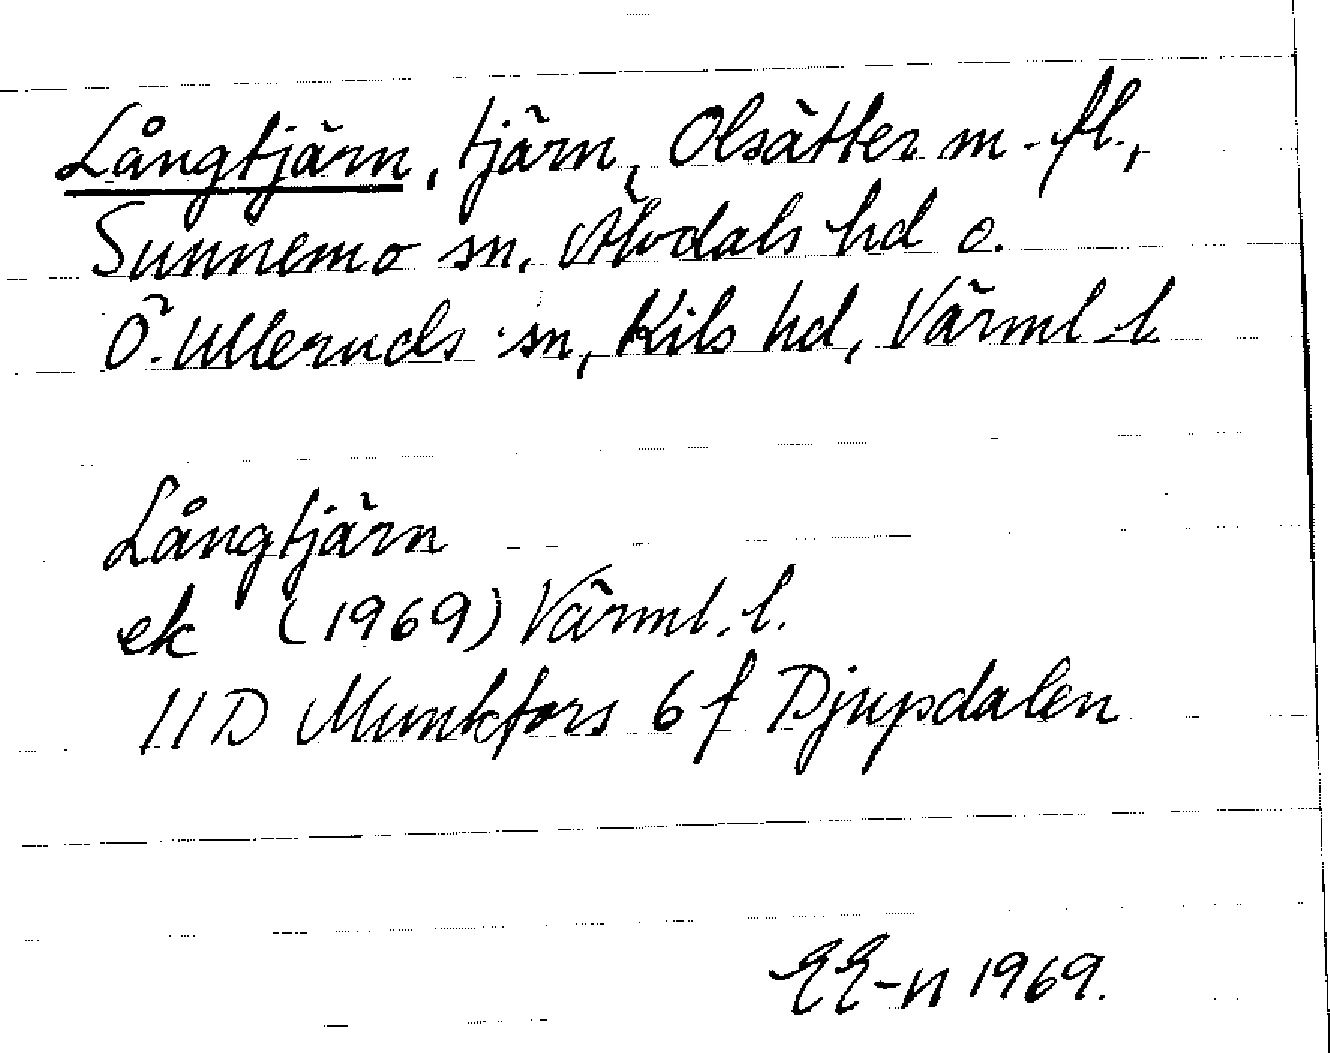 Långtjärn, tjärn, Olsätter m. fl.,
Sunnemo sn, Älvdals hd o.
Ö. Ulleruds sn, Kils hd, Värml. l.
Långtjärn
ek (1969) Värml. l.
11 D Munkfors 6 f Djupdalen
EE-n 1969.